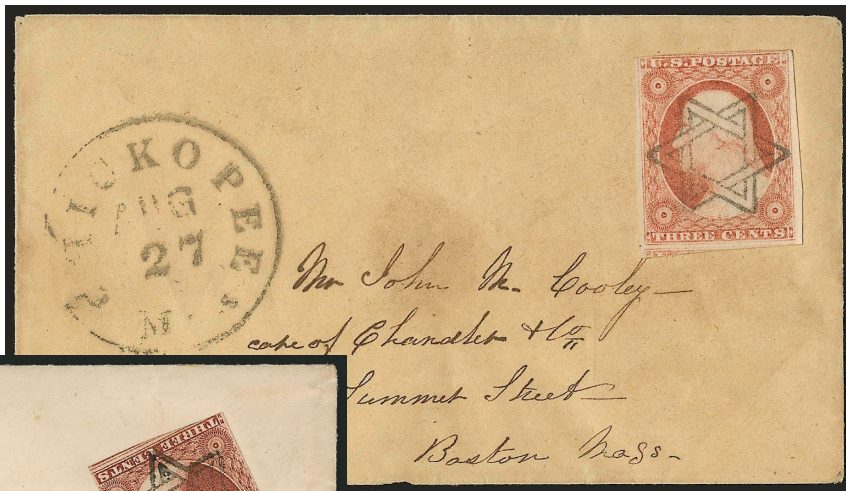 CHICKOPEE S
AUG
27
M
U.S. POSTAGE
THREE CENTS
Mr John M. Cooley
care of Chandler & Co
Summer Street
Boston Mass.
THREE CENTS